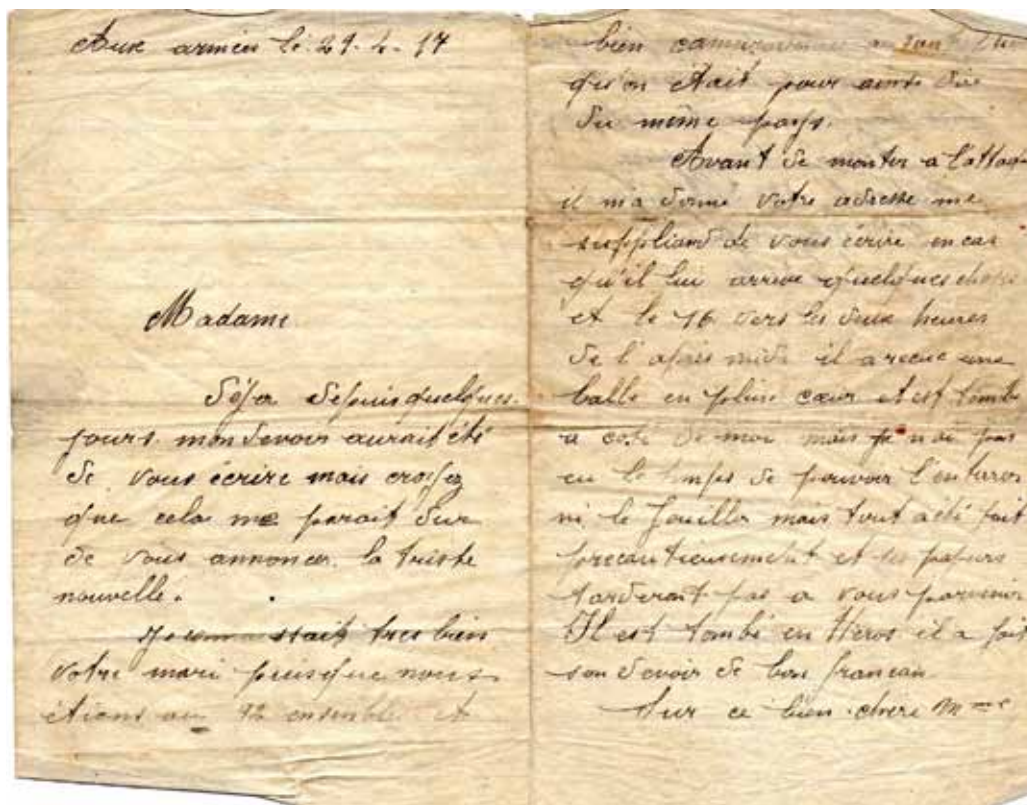 Aux armées le 29-4-17
Madame
Déja depuis quelques
jours mon devoir aurait été
de vous écrire mais croyez
que cela me parait dur
de vous annoncer la triste
nouvelle.
Je connaissait tres bien
votre mari puisque nous
étions au 92 ensemble et
bien
qu'on était pour ainsi dire
du même pays.
Avant de monter a l'attaque
il m'a donné votre adresse me
suppliant de vous écrire en cas
qu'il lui arrive quelques chose
et le 16 vers les deux heures
de l'apres midi il a recue une
balle en plein cœur et est tombé
a coté de moi mais je n'ai pas
eu le temps de pouvoir l'enterrer
ni le fouiller mais tout a été fait
precautieusement et ses papiers
tarderont pas a vous parvenir
Il est tombé en Heros il a fait
son devoir de bon francais
Sur ce bien chère Mme